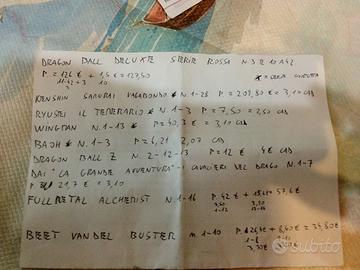 DRAGON BALL DELUXE SERIE ROSSA N 3 E 10 A 42
P = 126 € + 1,5 € = 127,50
* = SERIE COMPLETA
KENSHIN SAMURAI VAGABONDO * N. 1-28 P = 209,80 € = 3,10 CAD
RYUSEI IL TEMERARIO * N 1-3 P = 7,50 = 2,50 CAD
WINGMAN N. 1-13 * P = 40,3 € = 3,10 CAD
BAOH * N. 1-3 P = 6,21 2,07 CAD
DRAGON BALL Z N. 2-12-13 P = 12 € 4 € CAD
DAI "LA GRANDE AVVENTURA" I CAVALIERI DEL DRAGO N. 1-7
P = 21,7 € = 3,10
FULLMETAL ALCHEMIST N. 1-16 P 42 € + 57,6 €
BEET VANDEL BUSTER N 1-10 P. 26,40 + 8,40 € = 34,80 €
1-8
3,30 €
Subito